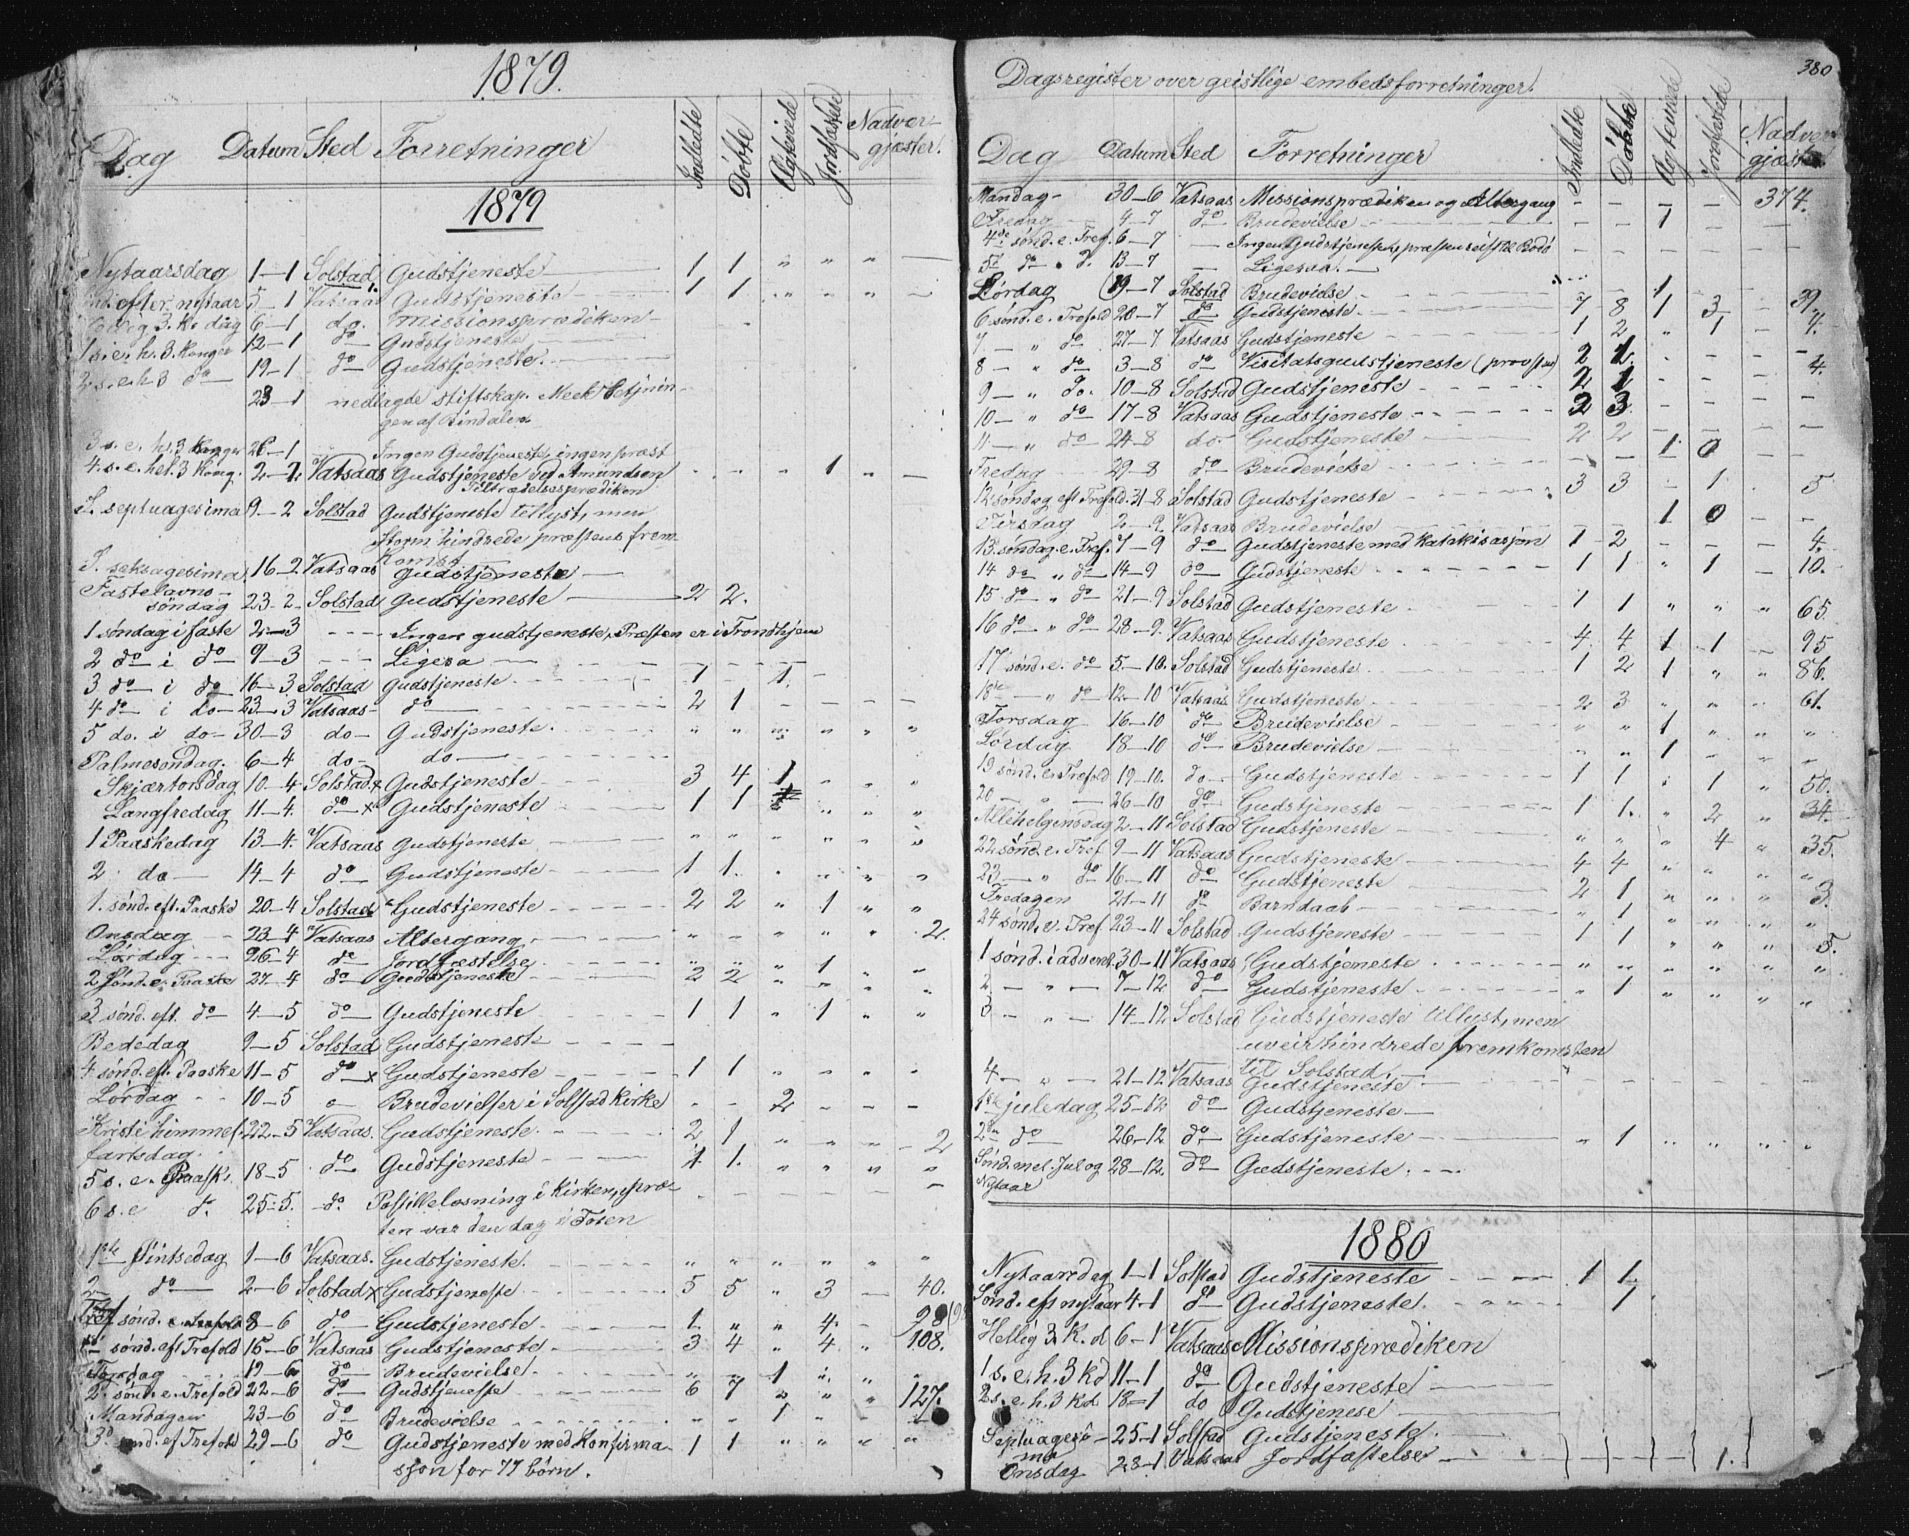 1879.
Dag Datum Sted Forretninger Indledte Döbte Ægteviede Jordfæstede Nadvergjæster.
1879
Nytaarsdag 1-1 Solstad Gudstjeneste 1 1 " " "
efter nytaar 5-1 Vatsaas Gudstjeneste 1 1 " " "
3. K. dag 6-1 do. Missionsprædiken
1 s. e. h. 3. Konger 12-1 do Gudstjeneste
2 s. e. h 3 do 19-1 do Gudstjeneste.
23-1 nedlagde stiftskap. Meek betjenin-
gen af Bindalen
3 s. e. h. 3 Konger 26-1 Ingen Gudstjeneste, ingen præst
4. s. e. hel. 3 Kong. 2-2 Vatsaas Gudstjeneste ved Amundsen 1
Tiltrædelsesprædiken
S. septuagesima 9-2 Solstad Gudstjeneste tillyst, men
Storm hindrede præstens frem-
komst
S. seksagesima 16-2 Vatsaas Gudstjeneste
Fastelavns-
söndag 23-2 Solstad Gudstjeneste 2 2.
1 söndag i faste 2-3 Ingen gudstjeneste, Præsten er i Trondhjem
2 do i do 9-3 Ligesa
3 do i do 16-3 Solstad Gudstjeneste 1 1.
4 do i do 23-3 Vatsaas do 2 1
5 do. i do 30-3 do Gudstjeneste. " " " " "
Palmesøndag. 6-4 do do
Skjærtorsdag 10-4 Solstad x Gudstjeneste 3 4 1 " "
Langfredag 11-4. do x Gudstjeneste 1 1 " "
1 Paaskedag 13-4. Vatsaas Gudstjeneste " " " " "
2 do 14-4 do Gudstjeneste 1 1. " " "
1. sönd. eft. Paaske 20-4 Solstad Gudstjeneste 2 2 " 1 " "
Onsdag 23-4 Vatsaas Altergang " " " " " 2.
Lördag 26-4 do Jordfæstelse " " " 1 " "
2 Sönd. e. Paaske 27-4 do Gudstjeneste 2 2 " " " "
3 sönd. eft. do 4-5 do Gudstjeneste 1 1 " 1 " "
Bededag 9-5 Solstad Gudstjeneste
4 sönd. eft. Paaske 11-5 do x Gudstjeneste 1 1 " " " "
Lördag 10-5 Brudevielser i Solstad Kirke 2
Kristi himmel- 22-5 Vatsaas. Gudstjeneste 2 1 " " " 2
fartsdag.
5 s. e. Paask. 18-5 do Gudstjeneste 1 1. " " " "
6 s. e do 25-5. do Postillelæsning i Kirken, præ-
ten var den dag i Foten
1ste Pintsedag 1-6 Vatsaas. Gudstjeneste. " " " " "
2 do 2-6 Solstad x Gudstjeneste 5 5 " 3 40.
sönd. e. Trefold 8-6 do Gudstjeneste 1. " " 4. 98
sönd. eft Trefold 15-6 Vatsaas Gudstjeneste 3 4 " 4 " 108.
Torsdag 19-6 do Brudevielse. " " 1 " " "
2. sönd. e. Trefold 22-6 do Gudstjeneste 6 7 " " " 127.
Mandagen 23-6 do Brudevielse 1 "
3 sönd. ef Trefold 29-6 do Gudstjeneste med Konfirma- 1 1 " " " "
sjon for 77 börn.
380
Dagsregister over geistlige embedsforretninger.
Dag Datum Sted Forretninger Indledte Döbte Ægteviede Jordfæstede Nadvergjæster
Mandag 30-6 Vatsaas Missionsprædiken og Altergang 374.
Fredag 4-7 do Brudevielse 1
4de sönd. e. Tref. 6-7 Ingen Gudstjeneste, præsten reist til Bodö
5te do " d. 13-7 Ligesaa.
Lördag 19-7 Solstad Brudevielse 1
6 sönd. e. Trefold 20-7 do Gudstjeneste 7 8 1 3 39.
7 " do 27-7 Vatsaas Gudstjeneste 1 2 " 1 4.
8 " do 3-8 do Visitatsgudstjeneste (provsten) 2 1. 4.
9 " do. 10-8 Solstad Gudstjeneste 2 1
10 " do 17-8 Vatsaas Gudstjeneste 2 3
11 " do 24-8 do Gudstjeneste 2 2
Fredag 29-8 do Brudevielse 1 0
12 söndag eft Trefold. 31-8 Solstad Gudstjeneste 3 3 1 5
Tirsdag 2-9. Vatsaas Brudevielse 1 0
13. söndag e. Tref. 7-9 do Gudstjeneste med katekisasjon 1 2 4.
14 do " do 14-9 do Gudstjeneste 1 1 " 1 10.
15 do " do 21-9 Solstad Gudstjeneste 1 1 " " " 65.
16 do " do 28-9. Vatsaas Gudstjeneste 4 4 1 1 95
17 sönd. e. do 5-10. Solstad Gudstjeneste 1 2 1 " " 86.
18de " do 12-10 Vatsaas Gudstjeneste 2 3 " " " 61.
Torsdag 16-10 do Brudevielse " " 1 " " "
Lördag 18-10 do Brudevielse " " 1 " " "
19 sönd. e. Trefold 19-10. do Gudstjeneste 1 1 " 1 " 50.
20 26-10 do Gudstjeneste 1 1. " 2 " 34.
Allehelgensdag 2-11 Solstad Gudstjeneste " " " 4 " 35.
22 sönd. e. Tref 9-11 Vatsaas Gudstjeneste 4 4 " " " "
23 " do 16-11 do Gudstjeneste 2 1 " " " 3.
Fredagen 21-11 do Barndaab " 1 " " " "
24 sönd. e. Tref 23-11 Solstad Gudstjeneste 1 1 " " " 5.
1 sönd. i advent. 30-11 Vatsaas Gudstjeneste " " " " " "
2 " 7-12 do Gudstjeneste " 1 " " " "
3 " 14-12 Solstad Gudstjeneste tillyst, men
uveir hindrede fremkomsten
til Solstad.
4 " 21-12 Vatsaas Gudstjeneste
1ste juledag 25-12 do Gudstjeneste
2den do 26-12 do Gudstjeneste " 1 " " " "
Sönd. mel. Jul og 28-12. do Gudstjeneste.
Nytaar
1880
Nytaarsdag 1-1 Solstad Gudstjeneste 1 1
Sönd. eft nytaar 4-1 do Gudstjeneste. 1
Hellig 3. K. d 6-1 Vatsaas Missionsprædiken
1 s. e. h. 3 kd 11-1 do Gudstjeneste
2 s. e. h. 3 kd 18-1 do Gudstjenese
Septuagesi- 25-1 Solstad Gudstjeneste.
ma
Onsdag 28-1 Vatsaas Jordfæstelse 1.